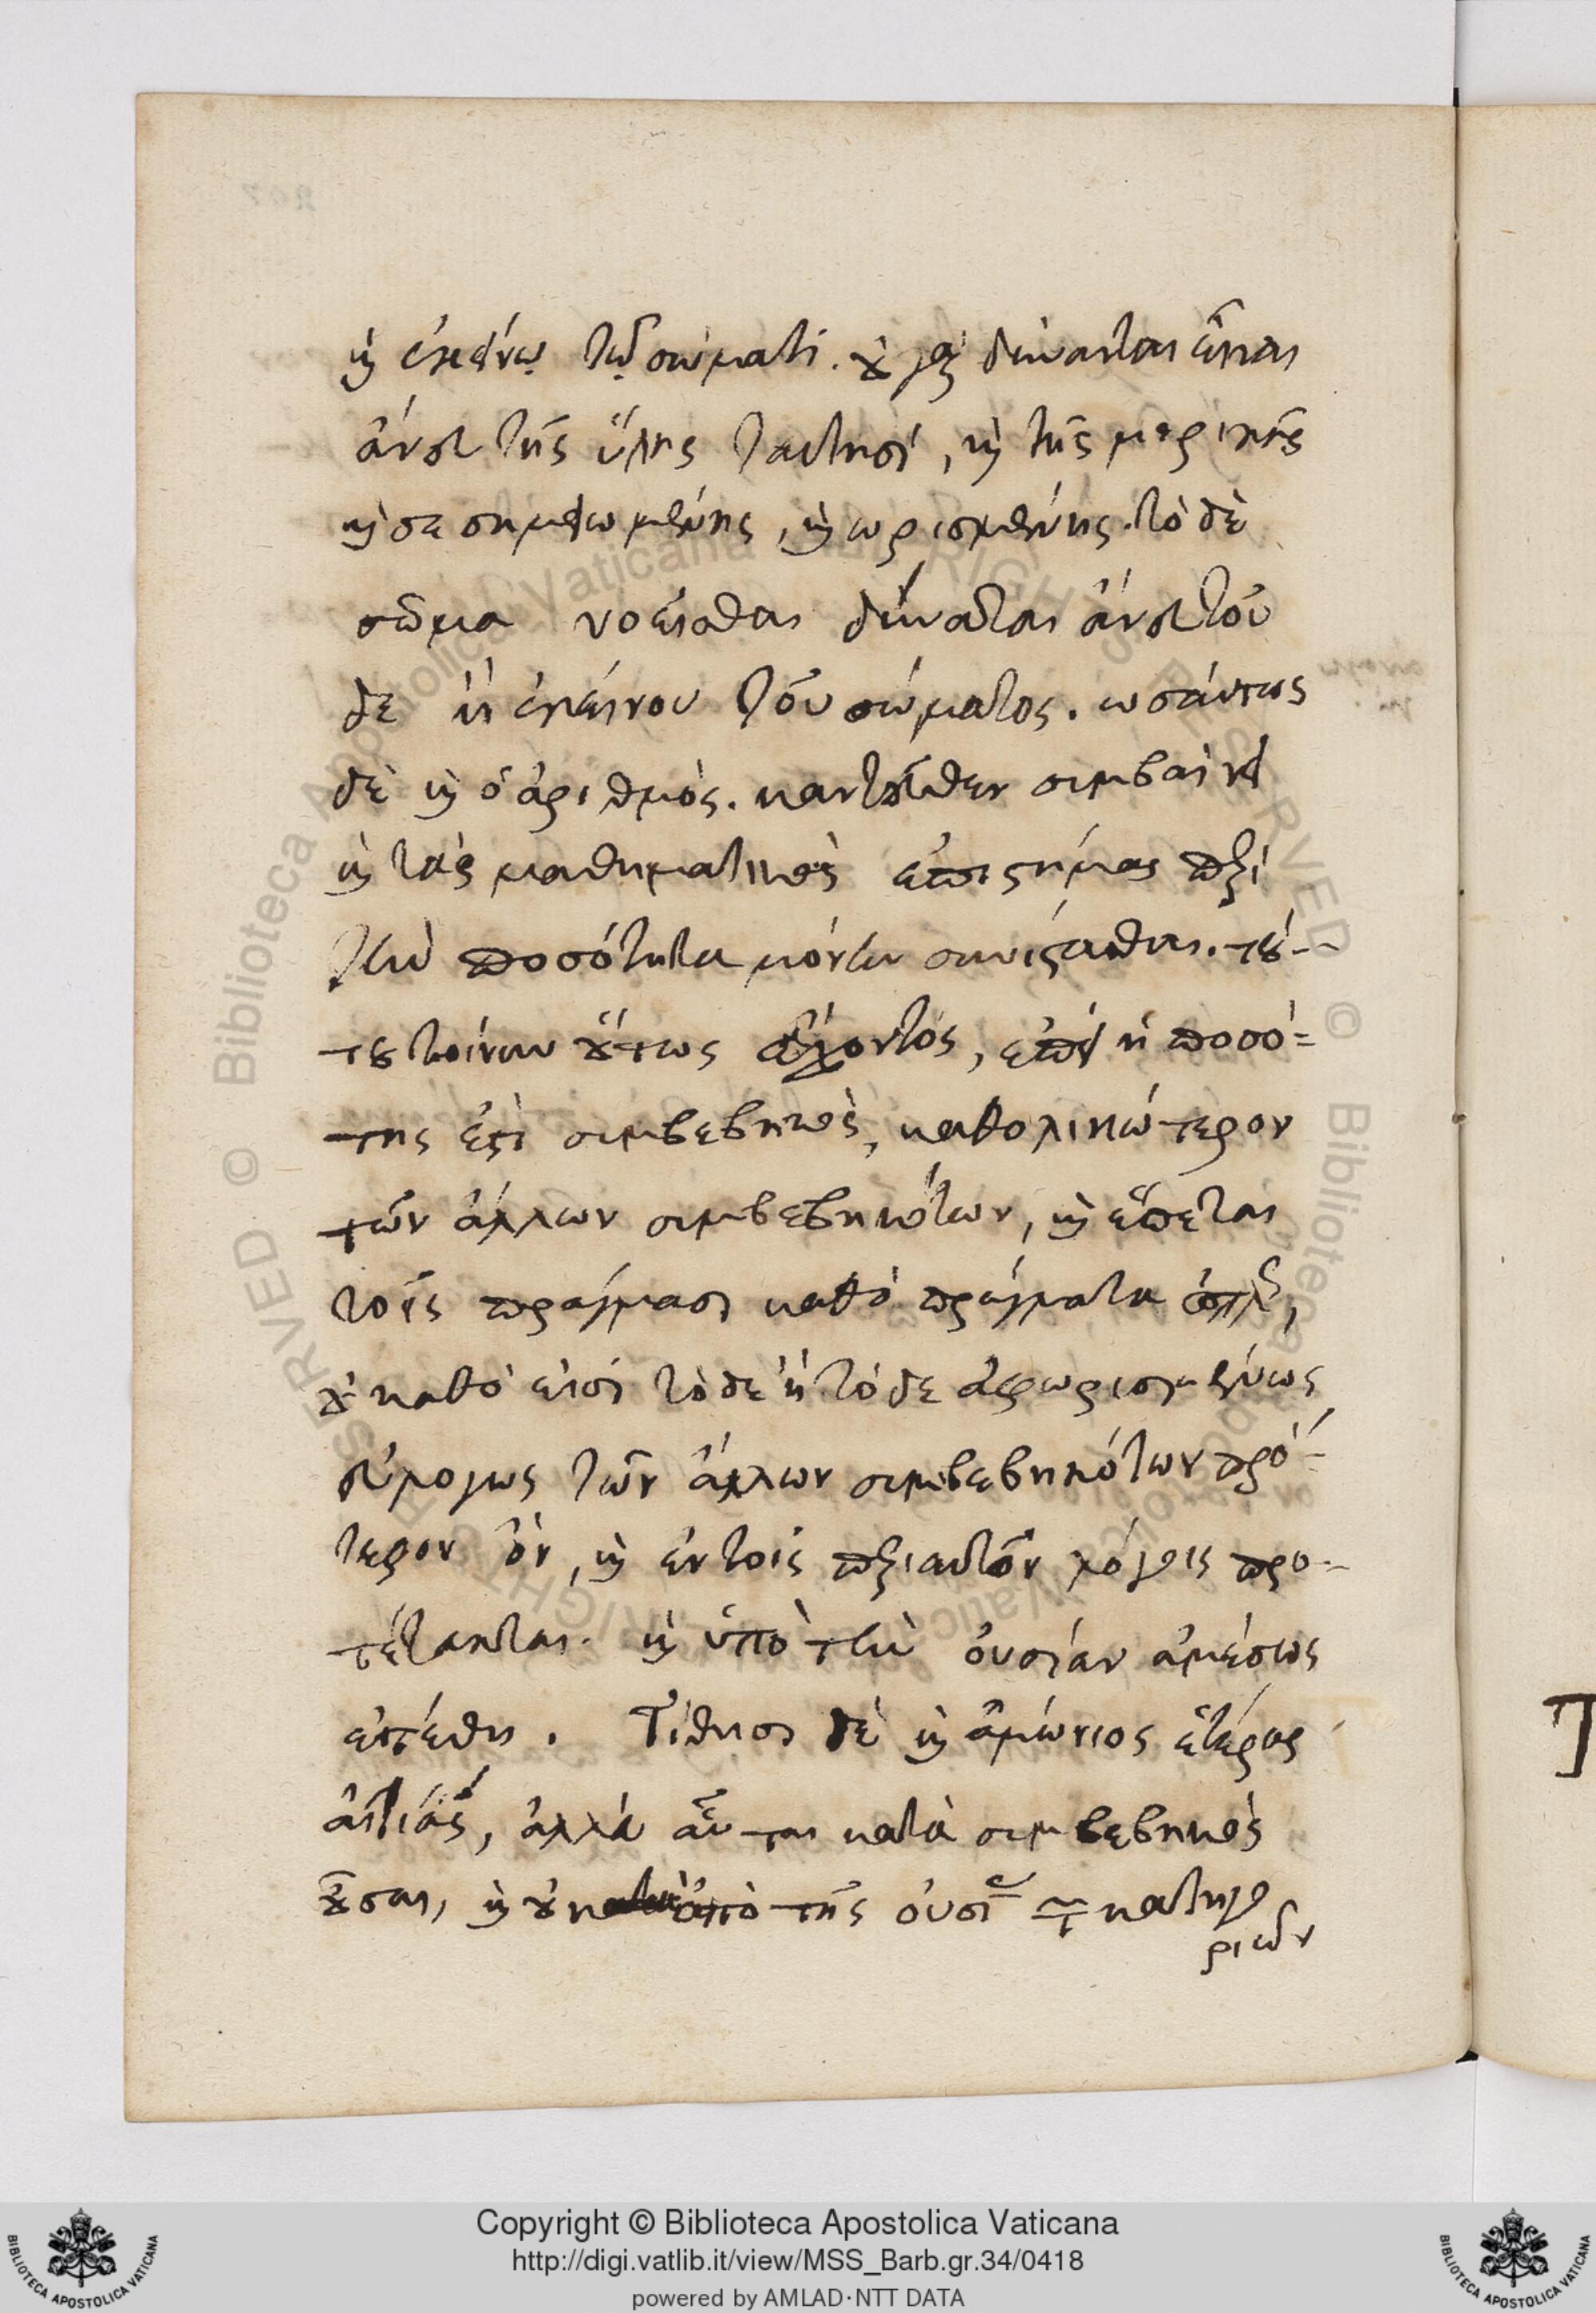 καὶ ἐκείνῳ τῷ σώματι. οὐ γὰρ δύναται εἶναι
ἄνευ τῆς ὕλης ταυτησὶ, καὶ τῆς μερικῆς
καὶ σεσημειωμένης, καὶ ὡρισμένης. τὸ δὲ
σῶμα νοεῖσθαι δύναται ἄνευ τοῦ
δε ἢ ἐκείνου τοῦ σώματος. ὡσαύτως
δὲ καὶ ὁ ἀριθμὸς. κἀντεῦθεν συμβαίνει
καὶ τὰς μαθηματικὰς ἐπιστήμας περὶ
τὴν ποσότητα μόνην συνίστασθαι. τού-
του τοίνυν οὕτως ἔχοντος, ἐπεὶ ἡ ποσό-
της ἐστὶ συμβεβηκὸς, καθολικώτερον
τῶν ἄλλων συμβεβηκότων, καὶ ἕπεται
τοῖς πράγμασι καθὸ πράγματα ἁπλῶς,
οὐ καθὸ εἰσὶ τὸ δε ἢ τό δε ἀφωρισμένως
εὐλόγως τῶν ἄλλων συμβεβηκότων πρό-
τερον ὂν, καὶ ἐν τοῖς περὶ αὐτῶν λόγοις προ-
τέτακται. καὶ ὑπὸ τὴν οὐσίαν ἀμέσως
ἐτέθη. Τίθησι δὲ καὶ ἀμώνιος ἑτέρας
αἰτίας, ἀλλὰ αὗται κατὰ συμβεβηκὸς
οὖσαι, καὶ οὐκ ἀπὸ τῆς οὐσίας τῶν κατηγο
ριῶν
Copyright © Biblioteca Apostolica Vaticana
http://digi.vatlib.it/view/MSS_Barb.gr.34/0418
powered by AMLAD·NTT DATA